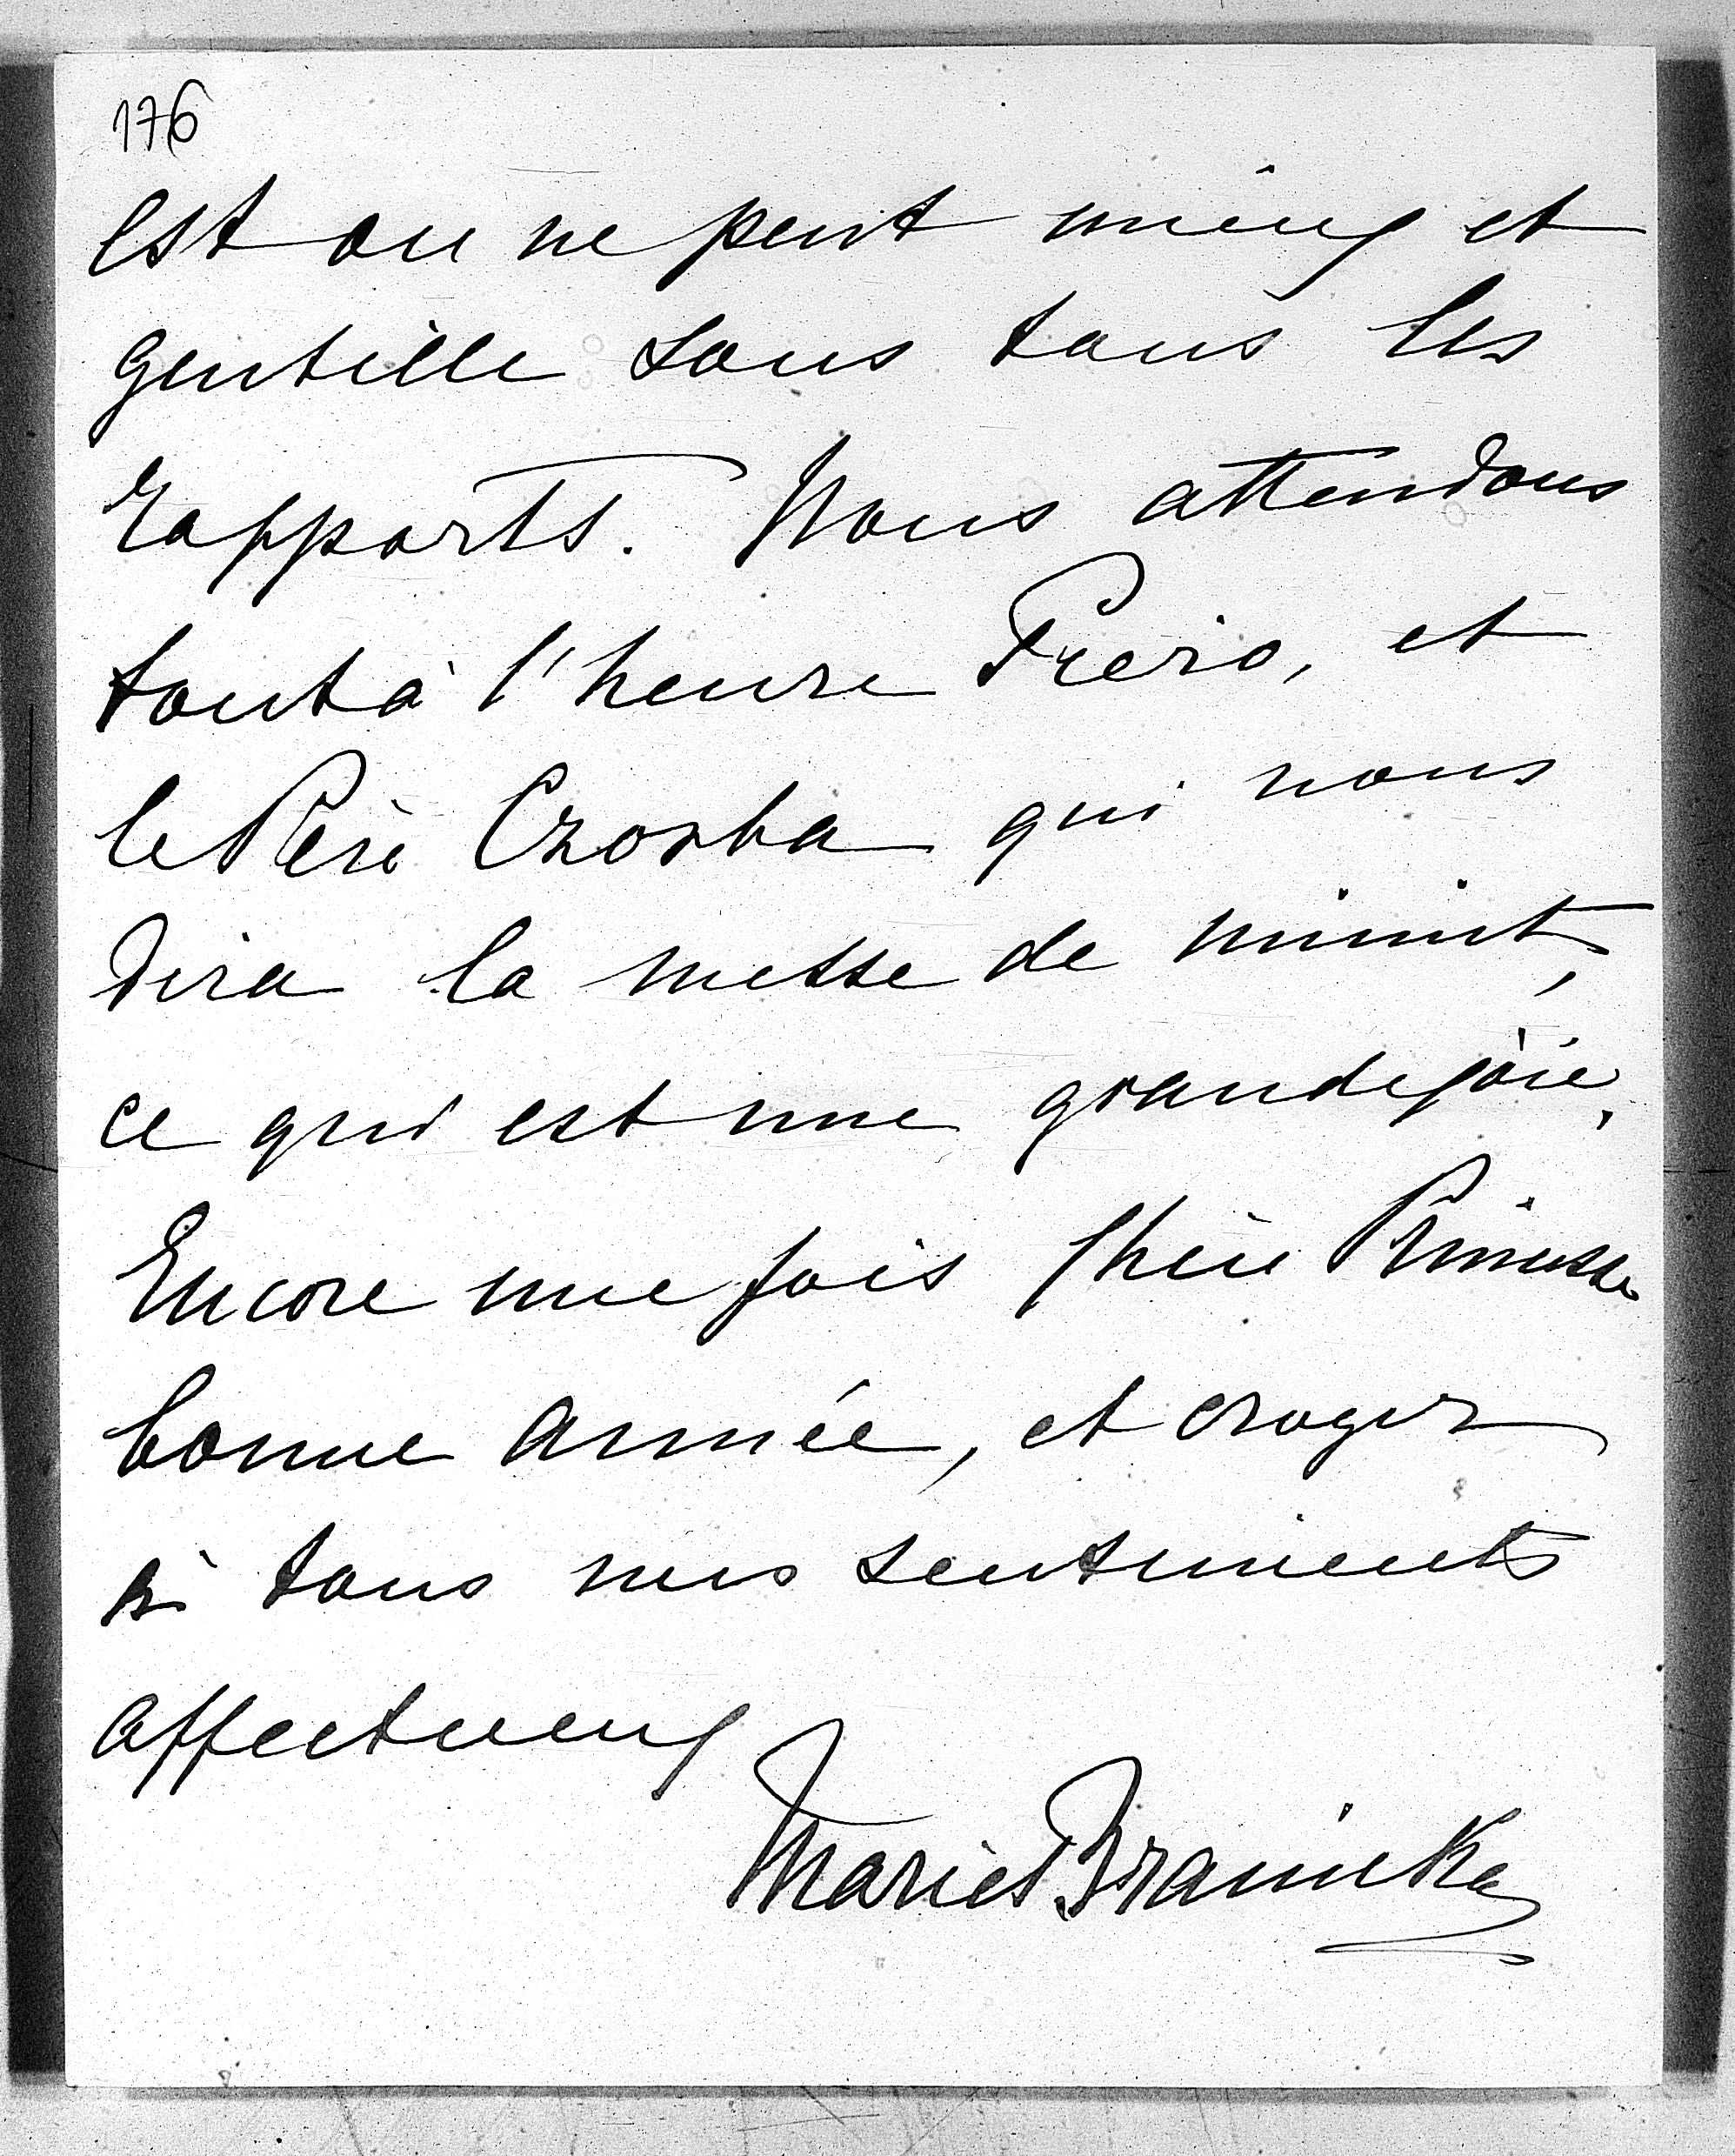 176
est on ne peut mieux et
gentille sous tous les
rapports. Nous attendons
tout à l'heure et
le Père qui nous
dira la messe de minuit,
ce qui est une grande joie,
Encore une fois Chère Princesse
bonne année, et croyez
à tous mes sentiments
affectueux
Marie Branicka